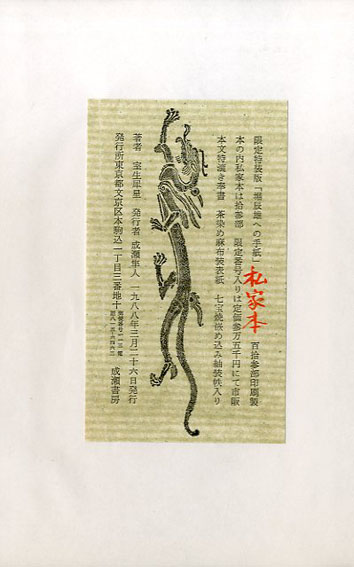 限定特装版「堀辰雄への手紙」 百拾参部印刷製
私家本
本の内私家本は拾参部 限定番号入りは定価参万五千円にて市販
本文特漉き奉書 茶染め麻布装表紙 七宝焼嵌め込み紬装帙入り
著者 室生犀星 発行者 成瀬隼人 一九八八年三月二十六日発行
発行所東京都文京区本駒込一丁目三番地十 成瀬書房